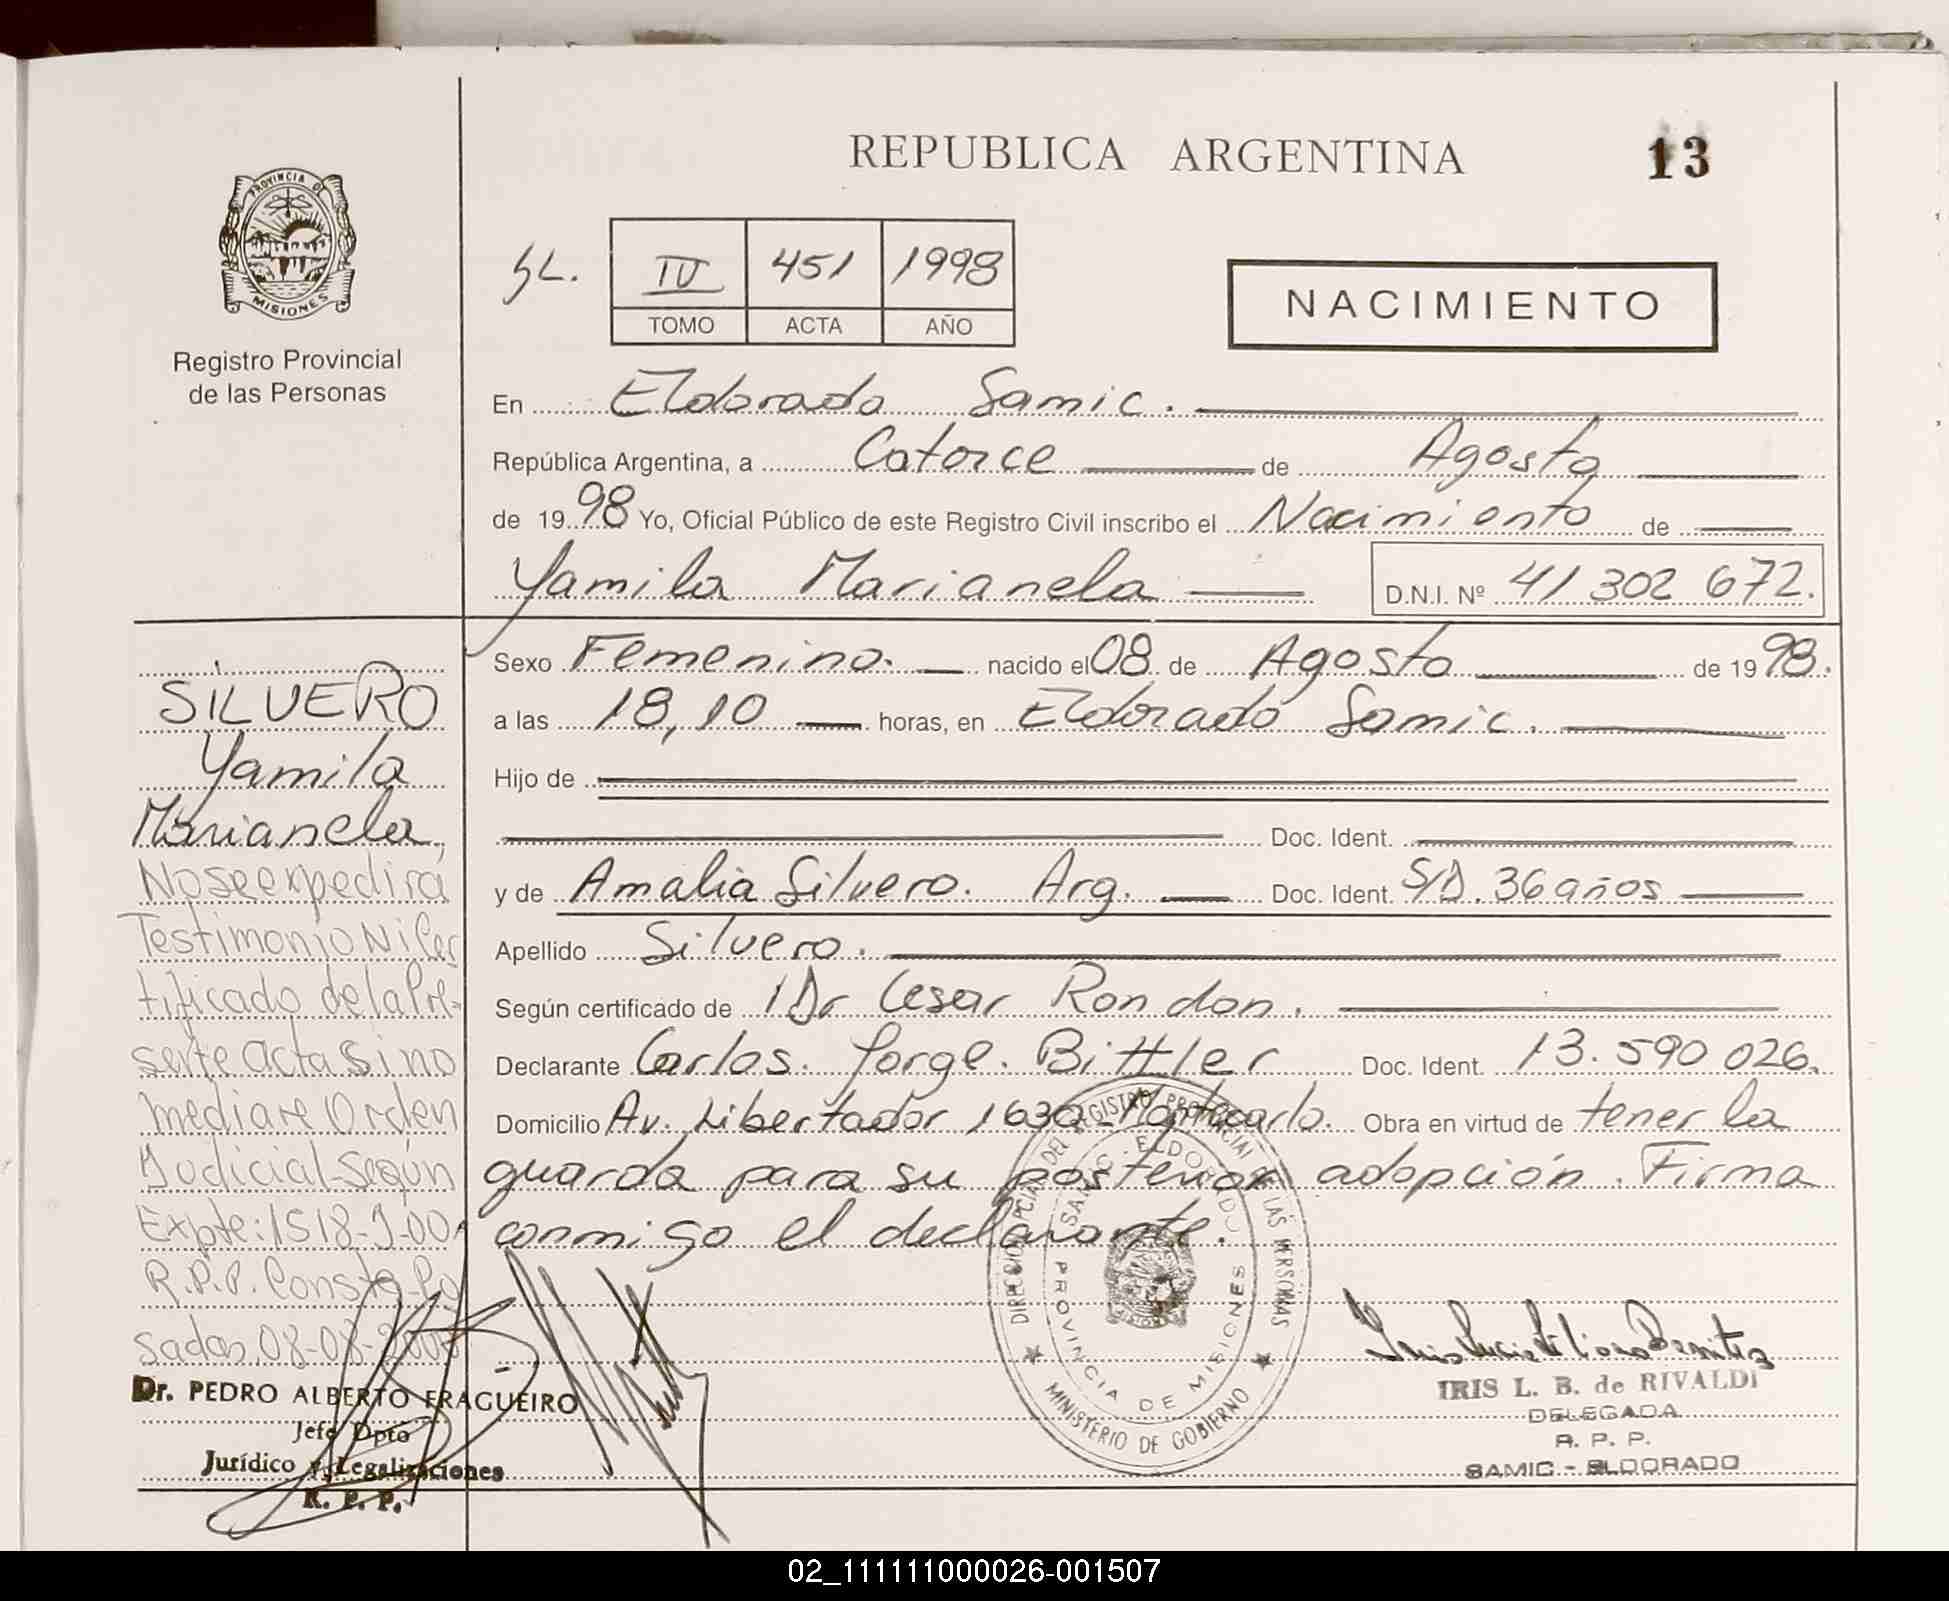 REPUBLICA ARGENTINA
13
PROVINCIA DE
MISIONES
Registro Provincial
de las Personas
IV 451 1998
TOMO ACTA AÑO
NACIMIENTO
En Eldorado Samic.
República Argentina, a Catorce de Agosto
de 1998 Yo, Oficial Público de este Registro Civil inscribo el Nacimiento de
Yamila Marianela D.N.I. Nº 41 302 672.
Sexo Femenino. nacido el 08 de Agosto de 1998.
a las 18,10 horas, en Eldorado Samic.
Hijo de
Doc. Ident.
y de Amalia Silvero. Arg. Doc. Ident. S/D. 36 años
Apellido Silvero.
Según certificado de Dr Cesar Rondon.
Declarante Carlos. Jorge. Bittler Doc. Ident. 13.590 026.
Domicilio Av. Libertador 1630 - Montecarlo. Obra en virtud de tener la
guarda para su posterior adopción. Firma
conmigo el declarante.
SILVERO
Yamila
Marianela,
No se expedira
Testimonio Ni Cer
tificado de la Pre-
sente acta si no
mediare Orden
Judicial Según
Expte: 1518-J-00
R.P.P. Consta. Po
sadas, 08-08-2000
Dr. PEDRO ALBERTO FRAGUEIRO
Jefe Dpto
Jurídico y Legalizaciones
R. P. P.
DIRECCION PCIAL DEL REGISTRO PROVINCIAL DE LAS PERSONAS
MINISTERIO DE GOBIERNO
SAMIC - ELDORADO
PROVINCIA DE MISIONES
IRIS L. B. de RIVALDI
DELEGADA
R. P. P.
SAMIC - ELDORADO
02_111111000026-001507